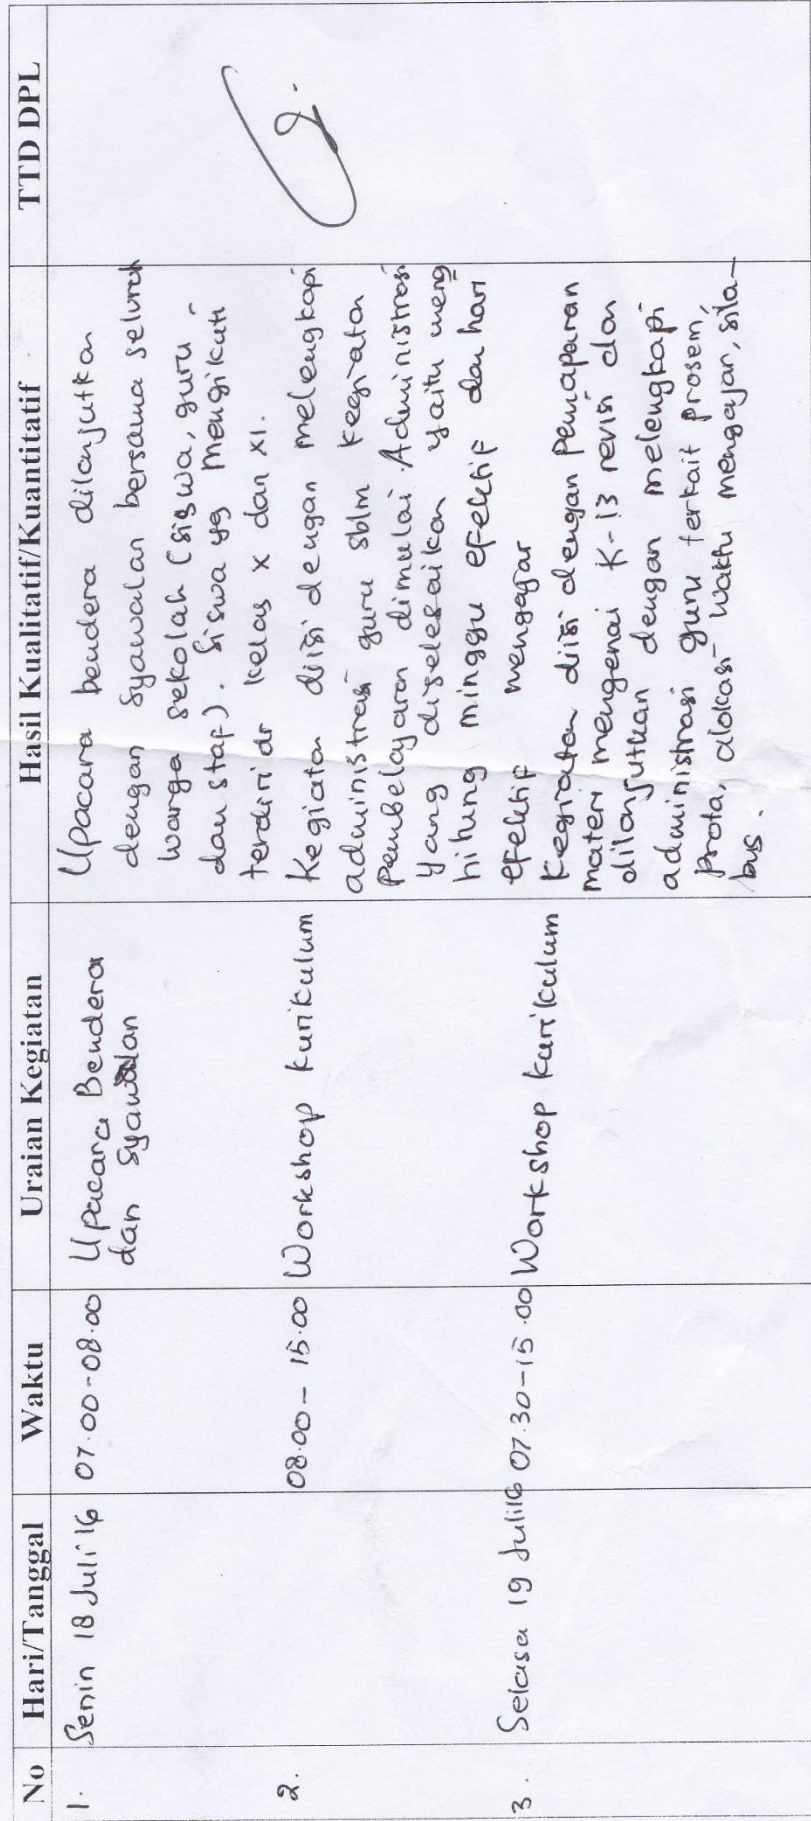 No Hari/Tanggal Waktu Uraian Kegiatan Hasil Kualitatif/Kuantitatif TTD DPL
1. Senin 18 Juli 16 07.00-08.00 Upacara Bendera Upacara bendera dilanjutkan
dan Syawalan dengan syawalan bersama seluruh
warga sekolah (siswa, guru -
dan staf). Siswa yg mengikuti
terdiri dr kelas X dan XI.
2. 08.00 - 15.00 Workshop kurikulum Kegiatan diisi dengan melengkapi
administrasi guru sblm kegiatan
pembelajaran dimulai. Administrasi
yang diselesaikan yaitu meng
hitung minggu efektif dan hari
efektif mengajar
3. Selasa 19 Juli 16 07.30-15.00 Workshop kurikulum Kegiatan diisi dengan pemaparan
materi mengenai K-13 revisi dan
dilanjutkan dengan melengkapi
administrasi guru terkait prosem,
prota, alokasi waktu mengajar, sila-
bus.